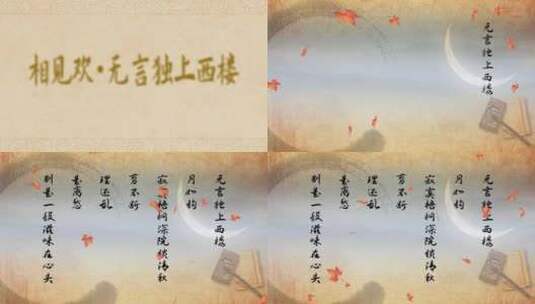 相見欢·无言独上西楼
无言独上西楼
无言独上西楼
月如钩
寂寞梧桐深院锁清秋
剪不断
理还乱
是离愁
别是一般滋味在心头
无言独上西楼
月如钩
寂寞梧桐深院锁清秋
剪不断
理还乱
是离愁
别是一般滋味在心头